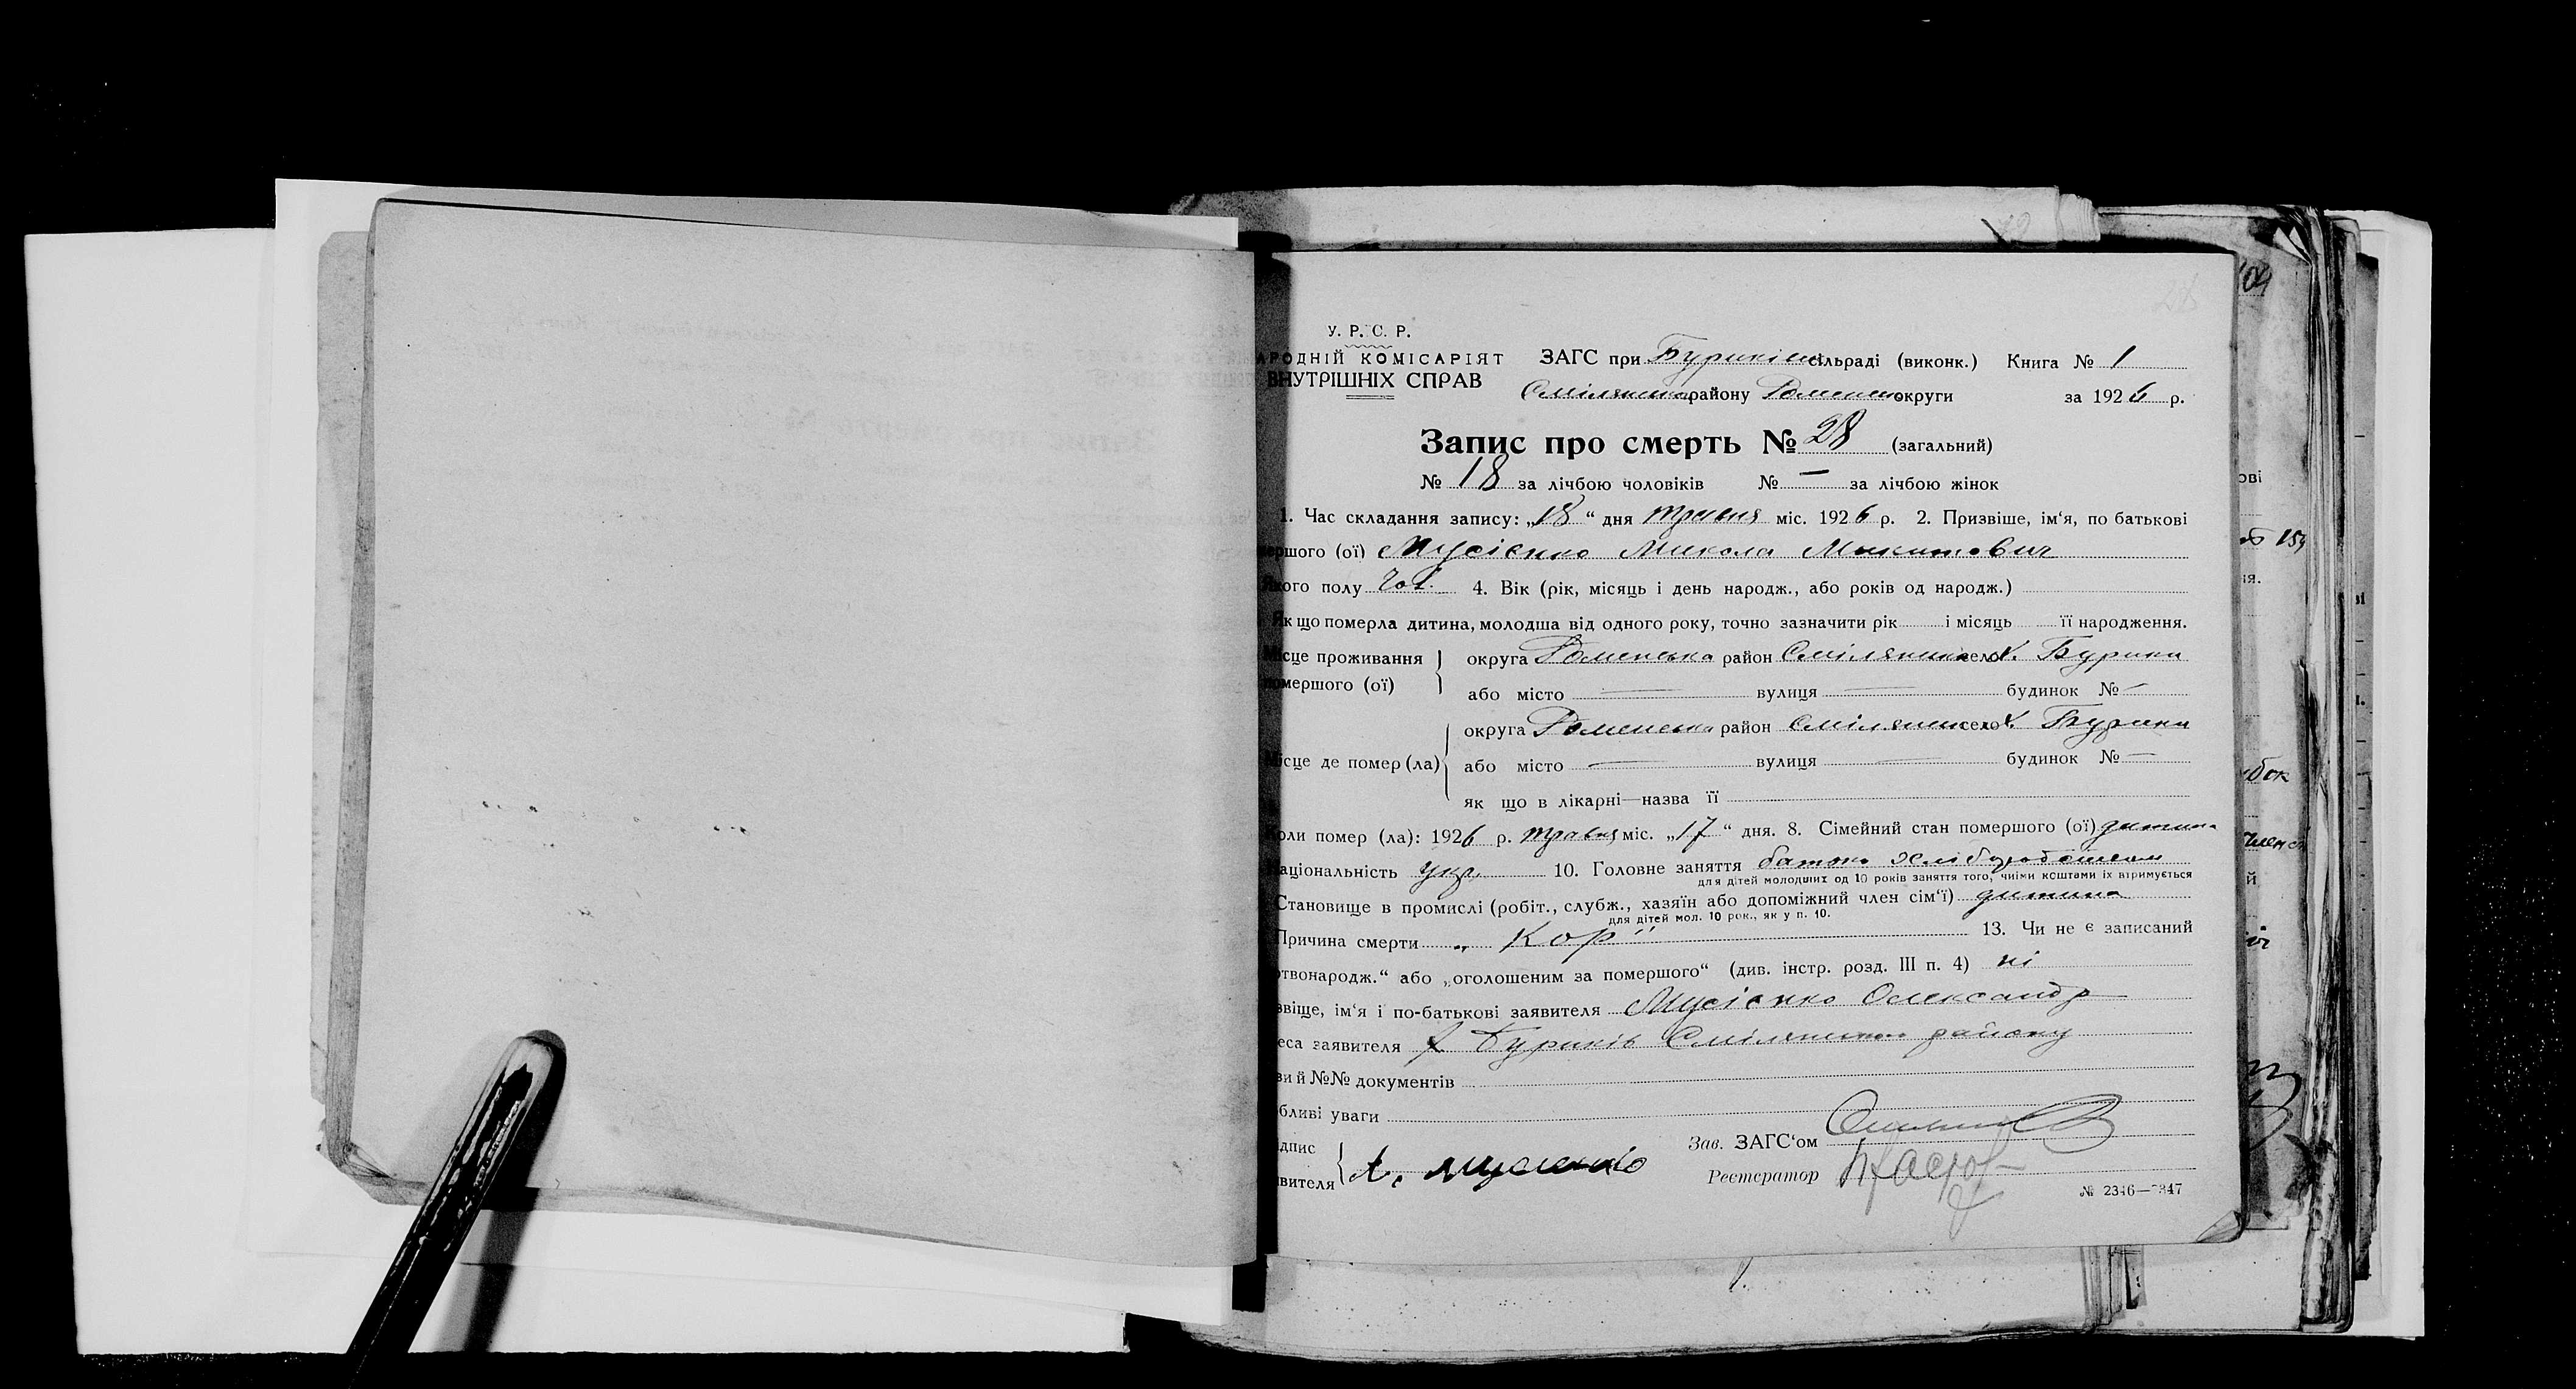 У. Р. С. Р.
АРОДНІЙ КОМІСАРІЯТ ЗАГС при сільраді (виконк.) Книга № 1
ВНУТРІШНІХ СПРАВ
району округи за 1926 р.
Запис про смерть № 28 (загальний)
№ 18 за лічбою чоловіків № — за лічбою жінок
1. Час складання запису: „18“ дня травня міс. 1926 р. 2. Призвіше, ім‘я, по батькові
ершого (ої) Мусієнко Микола Микитович
кого полу чол. 4. Вік (рік, місяць і день народж., або років од народж.)
Як що померла дитина, молодша від одного року, точно зазначити рік і місяць її народження.
Місце проживання округа Роменська район село х. Бурики
помершого (ої) або місто — вулиця — будинок № —
округа Роменська район село х. Бурики
Місце де помер (ла) або місто — вулиця — будинок № —
як що в лікарні—назва її
оли помер (ла): 1926 р. травня міс. „17“ дня. 8. Сімейний стан помершого (ої) дитина
аціональність укр. 10. Головне заняття батько
для дітей молодших од 10 років заняття того, чиїми коштами їх втримується
Становище в промислі (робіт., службж., хазяїн або допоміжний член сім‘ї) дитина
для дітей мол. 10 рок., як у п. 10.
Причина смерти „Кор“ 13. Чи не є записаний
ртвонародж.“ або „оголошеним за помершого“ (див. інстр. розд. III п. 4) ні
звіще, ім‘я і по-батькові заявителя Мусієнко Олександр
еса заявителя х. Буриків району
ви й №№ документів
бливі уваги
дпис Зав. ЗАГС‘ом
явителя А. Мусиенко Реєстратор
№ 2346—2347